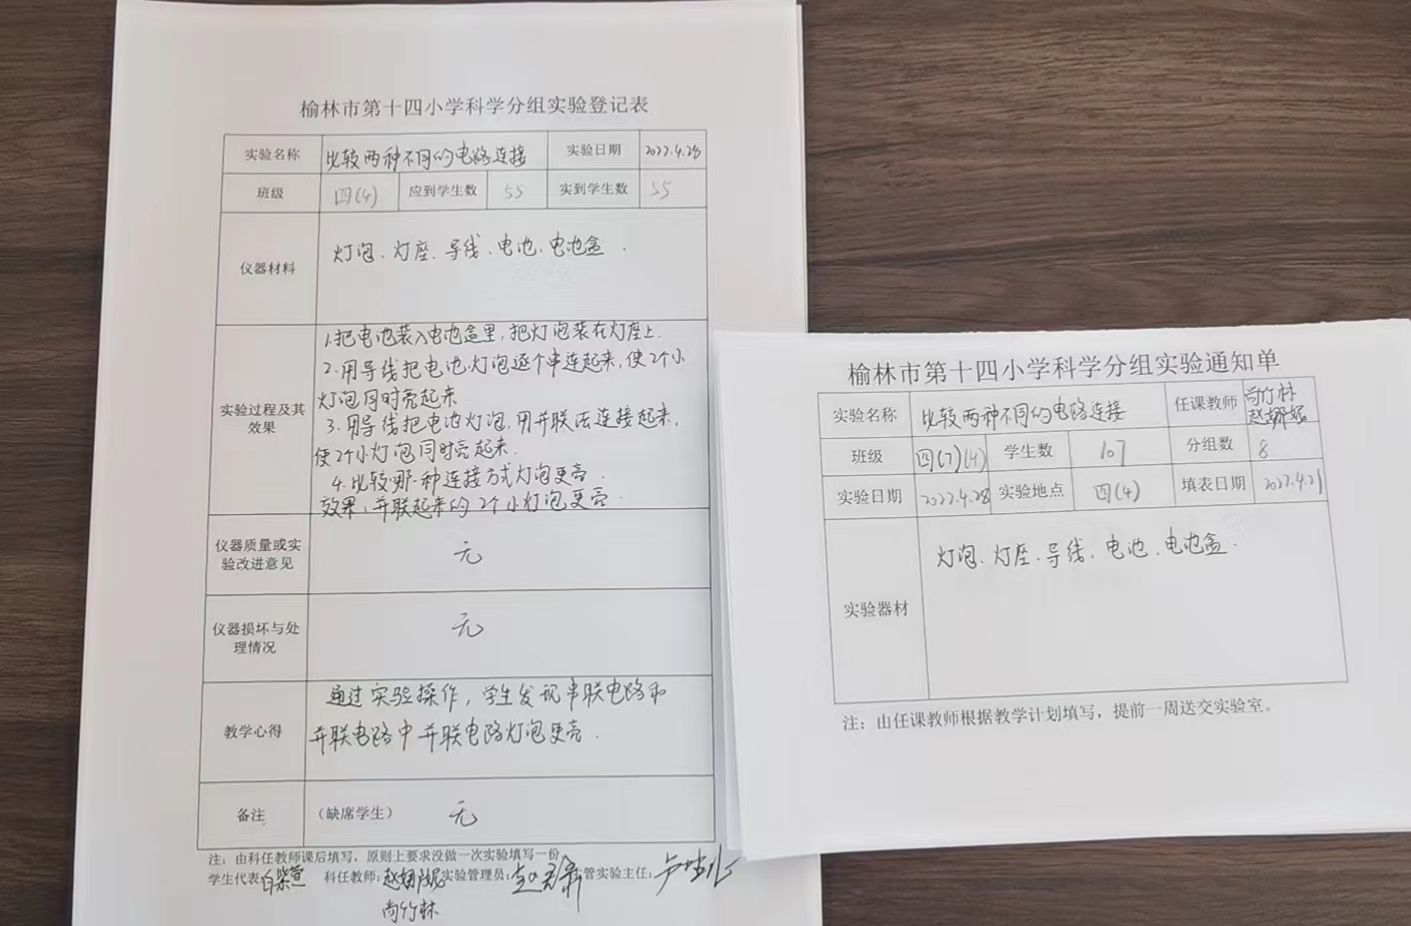 榆林市第十四小学科学分组实验登记表
实验名称 比较两种不同的电路连接 实验日期 2022.4.28
班级 四(4) 应到学生数 55 实到学生数 55
仪器材料 灯泡、灯座、导线、电池、电池盒.
实验过程及其效果
1.把电池装入电池盒里,把灯泡装在灯座上.
2.用导线把电池灯泡逐个串连起来,使2个小
灯泡同时亮起来
3.用导线把电池灯泡,用并联法连接起来,
使2个小灯泡同时亮起来.
4.比较哪一种连接方式灯泡更亮.
效果:并联起来的2个小灯泡更亮.
仪器质量或实验改进意见 无
仪器损坏与处理情况 无
教学心得
通过实验操作,学生发现串联电路和
并联电路中并联电路灯泡更亮.
备注 (缺席学生) 无
注:由科任教师课后填写,原则上要求没做一次实验填写一份
学生代表: 科任教师: 实验管理员: 管实验主任:
尚竹林
榆林市第十四小学科学分组实验通知单
实验名称 比较两种不同的电路连接 任课教师 尚竹林
班级 四(7)(4) 学生数 107 分组数 8
实验日期 2022.4.28 实验地点 四(4) 填表日期 2022.4.21
实验器材 灯泡、灯座、导线、电池、电池盒.
注:由任课教师根据教学计划填写,提前一周送交实验室。